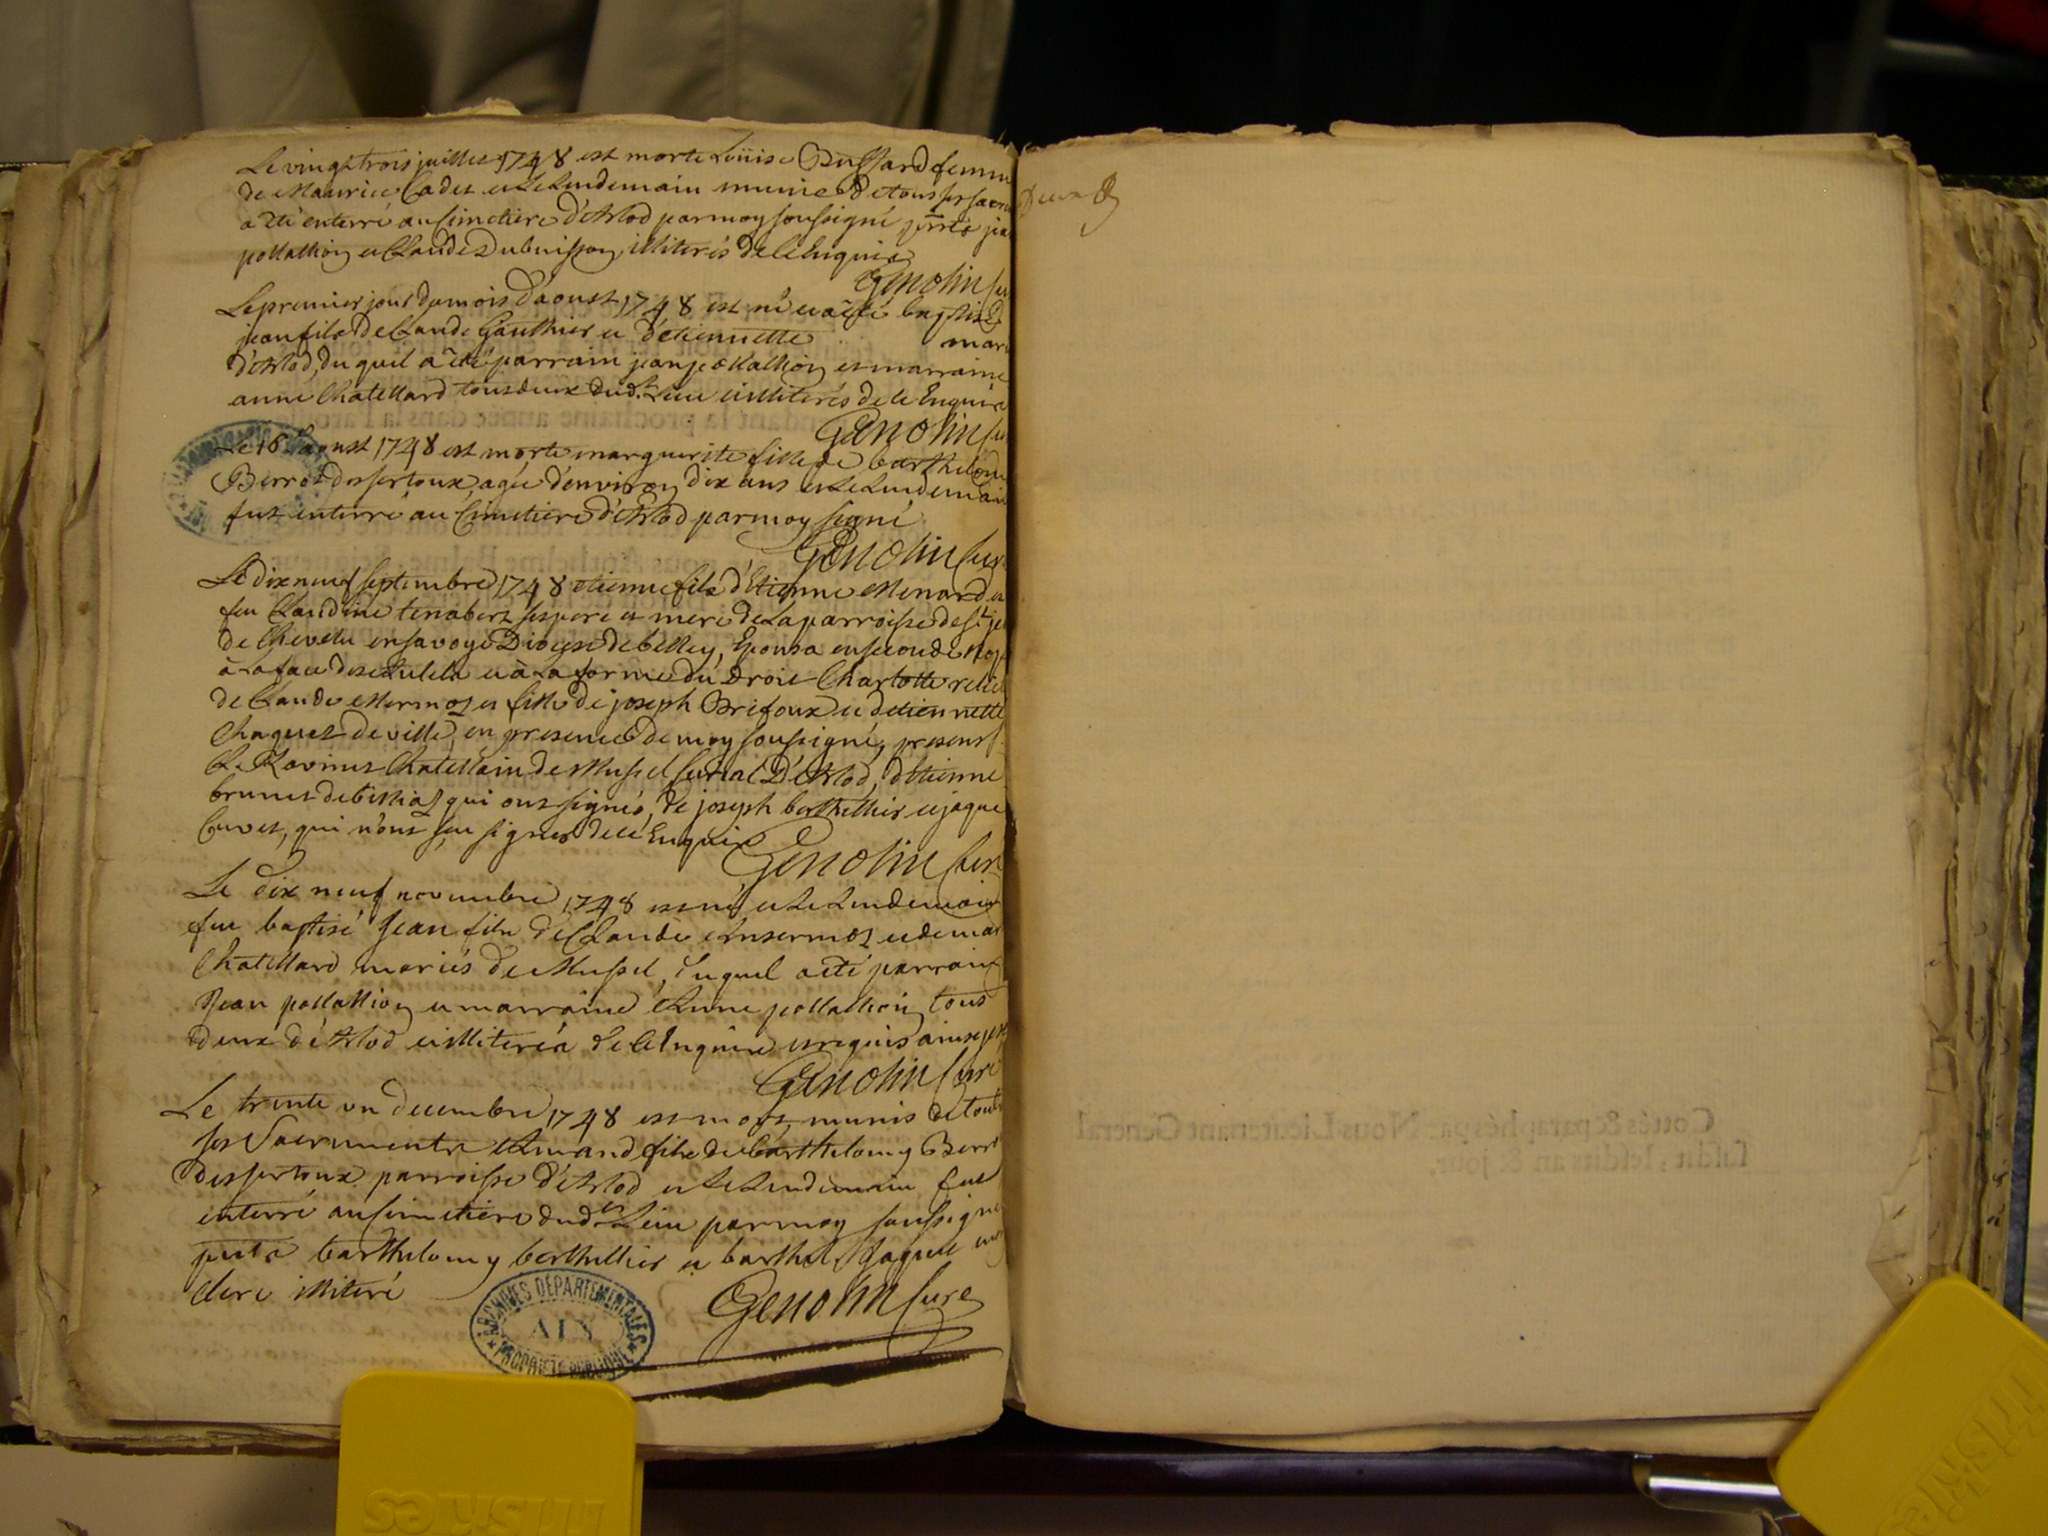 Le vingt trois juillet 1748 est morte Loüise Bussard femm
de Maurice Cadet et le lendemain munie de tous ses sacre
a été enterré au cimetiere d'Arlod par moy soussigné pnts jea
pollattion et Claude Dubuisson illiterés de ce Enquis
Genolin Cu
Le premier jour du mois d'aoust 1748 est né et a été baptisé
jean fils de Claude Gauthier et d'etiennette mari
d'Arlod, duquel a été parrain jean pollattion et marraine
anne Chatellard tous deux dud. Lieu illiterés de ce Enquis
Genolin Cu
Le 16 aoust 1748 est morte marguerite fille de barthelom
Berrod desssertoux, agée d'environ dix ans et le lendemain
fut enterré au Cimetiere d'Arlod par moy signé
Genolin Cur
Le dix neuf septembre 1748 etienne fils d'Etienne Menard et
feu Claudine ses pere et mere de la parroisse de st je
de Chevelu en savoye Diocese de belley, Epousa en seconde nop
à la face des autels et à la forme du droit Charlotte relic
de Claude Mermoz et fille de joseph Brifoux et d'etiennette
Chaquet de ville, en presence de moy soussigné, presens s.
Ravinet Chatellain de Mussel d'Arlod, d'Etienne
brunet de billiaz qui ont signés, de joseph berthellier et jaque
Cuvet, qui n'ont seu signer de ce Enquis
Genolin Cure
Le dix neuf novembre 1748 est né et le lendemain
fut baptisé Jean fils de Claude Ansermoz et de mar
Chatellard mariés de Mussel, duquel a été parrain
Jean pollattion et marraine Anne pollattion tous
deux d'Arlod illiterés de ce Enquis et requis
Genolin Curé
Le trente un decembre 1748 est mort munis de touts
ses Sacrements Armand fils de barthelomy Berr
dessertoux parroisse d'Arlod et le lendemain fut
enterré au cimetiere dud. Lieu par moy soussigné
pnts barthelomy berthellier et barthel. Jaquet
clerc illiteré
Genolin Cure
ARCHIVES DÉPARTEMENTALES
AIN
PROPRIÉTÉ PUBLIQUE
Cottés & paraphés par Nous Lieutenant General
susdit, lesdits an & jour.